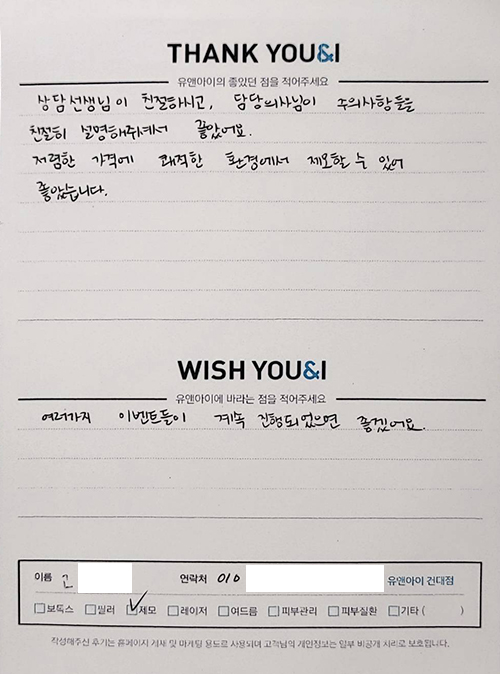 THANK YOU&I
유앤아이의 좋았던 점을 적어주세요
상담선생님이 친절하시고, 담당의사님이 주의사항들을
친절히 설명해주셔서 좋았어요.
저렴한 가격에 쾌적한 환경에서 제모할 수 있어
좋았습니다.
WISH YOU&I
유앤아이에 바라는 점을 적어주세요
여러가지 이벤트들이 계속 진행되었으면 좋겠어요.
이름 고 연락처 010 유앤아이 건대점
보톡스 필러 제모 레이저 여드름 피부관리 피부질환 기타 ( )
작성해주신 후기는 홈페이지 게재 및 마케팅 용도로 사용되며 고객님의 개인정보는 일부 비공개 처리로 보호됩니다.